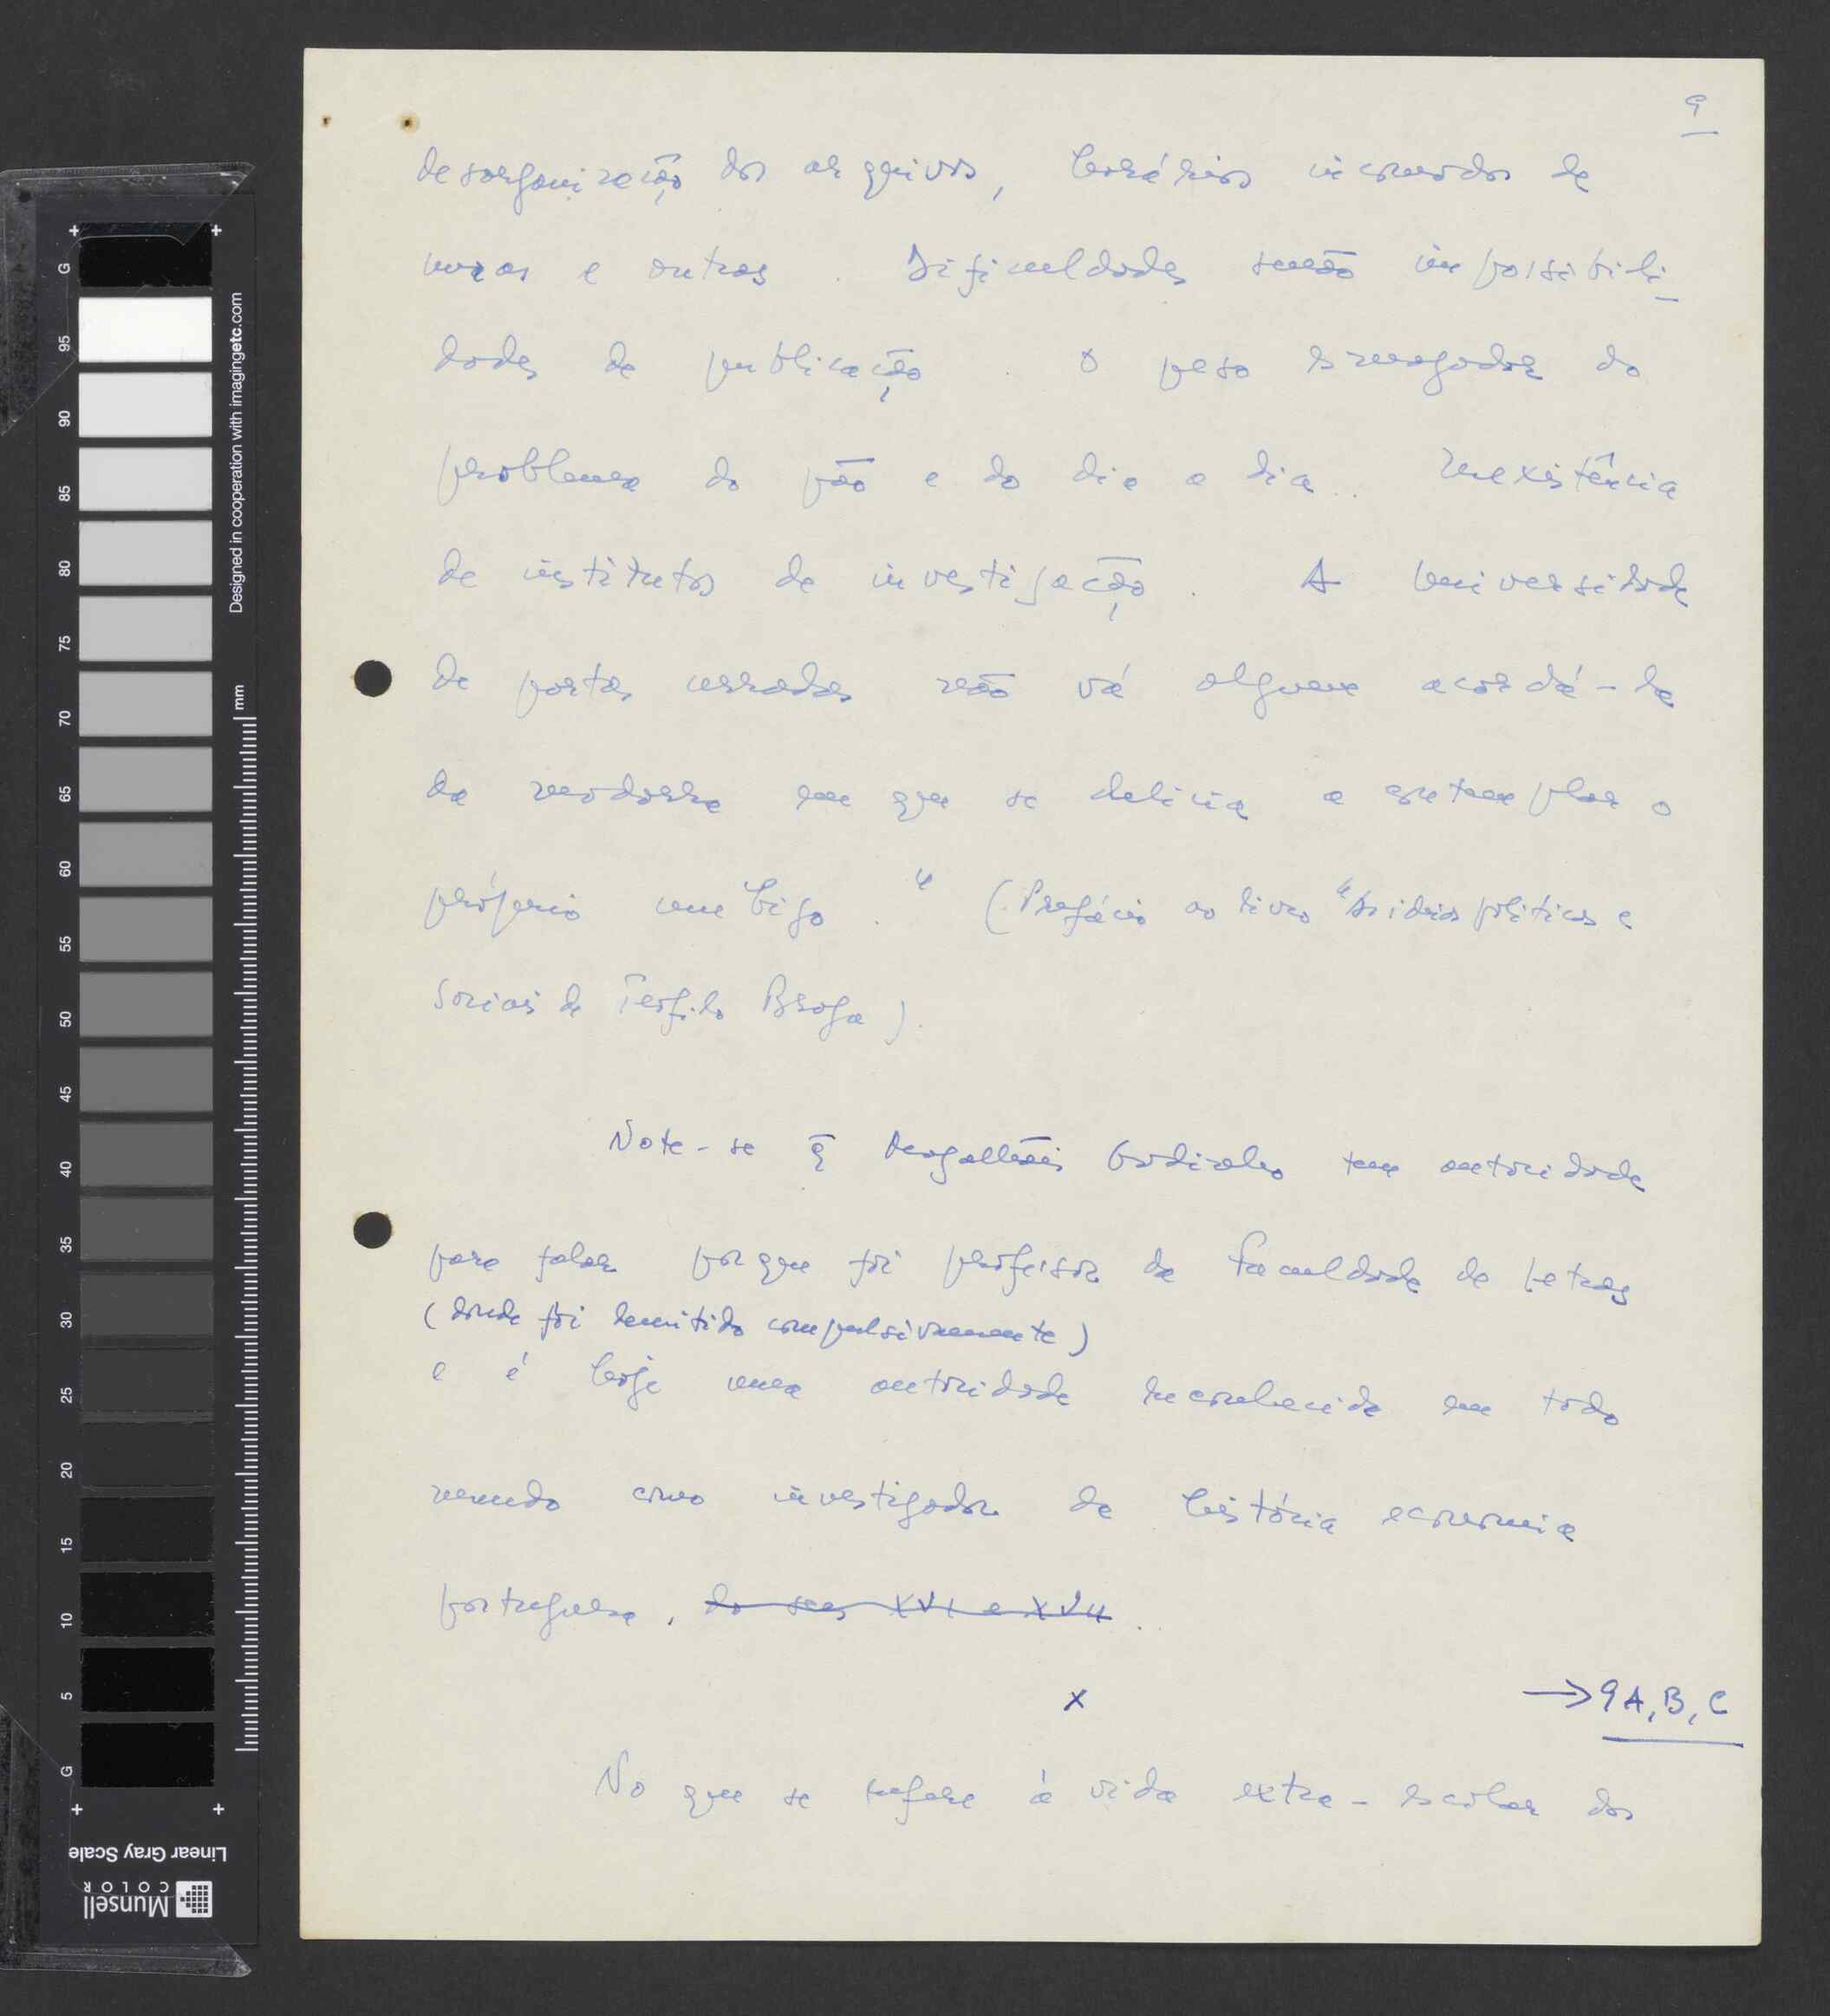 9
desorganização dos arquivos, horários incomodos de
umas e outras. Dificuldades senão impossibili-
dades de publicação. O peso esmagador do
problema do pão e do dia a dia. Inexistência
de institutos de investigação. A Universidade
de portas cerradas não vá alguem acordá-la
da modorra em que se delicia a contemplar o
próprio umbigo." (Prefácio ao livro "As ideias politicas e
sociais de Teofilo Braga).
Note-se q̄ Magalhães Godinho tem autoridade
para falar porque foi professor da Faculdade de Letras
(donde foi demitido compulsivamente)
e é hoje uma autoridade reconhecida em todo
mundo como investigador da história economia
portuguesa, do secs XVI e XVII.
x
→ 9A, B, C
No que se refere à vida extra-escolar dos
G
95
90
85
80
75
70
65
60
55
50
45
40
35
30
25
20
15
10
5
G
Designed in cooperation with imagingetc.com
mm
Linear Gray Scale
Munsell
COLOR